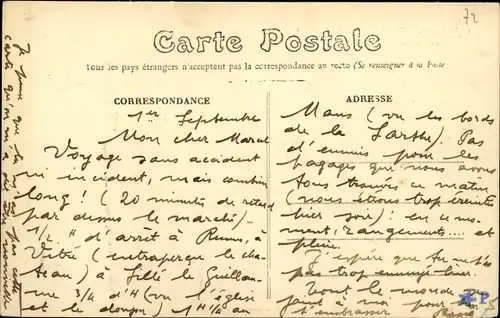 72
Carte Postale
Tous les pays étrangers n'acceptent pas la correspondance au recto (Se renseigner à la Poste
CORRESPONDANCE
1er Septembre
Mon cher Marcel
Voyage sans accident
ni incident, mais combien
long! (20 minutes de retard
par dessus le marché)-
1/2 H d'arrêt à Rennes, à
Vitré (entraperçu le cha-
teau) à Sillé le Guillau-
me 3/4 d'H (vu l'église
et le donjon) 1H au
ADRESSE
Mans (vu les bords
de la Sarthe). Pas
d'ennuis pour les
bagages que nous avons
tous trouvés ce matin
(nous étions trop éreintés
hier soir): en ce mo-
ment: rangements.... et
pluie.
J'espère que tu ne t'es
pas trop ennuyé hier.
Tout le monde se
joint à moi pour
t'embrasser
Je pense que
carte qu'on m'a dit
P